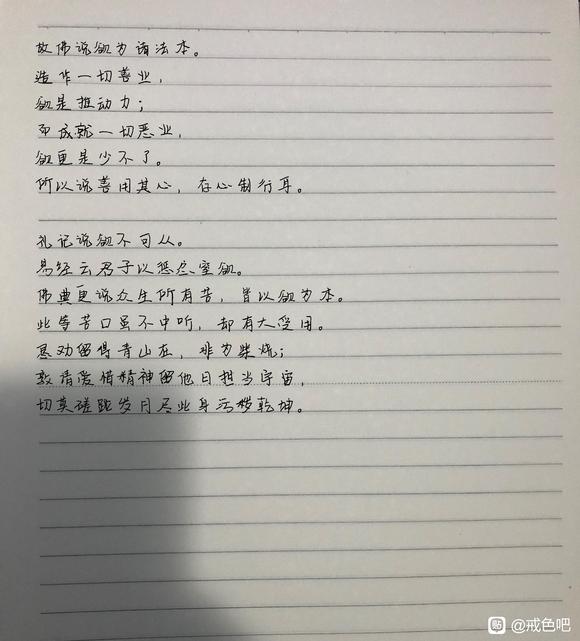 故佛说欲为诸法本。
造作一切善业,
欲是推动力;
而成就一切恶业,
欲更是少不了。
所以说善用其心,存心制行耳。
礼记说欲不可从。
易经云君子以惩忿窒欲。
佛典更说众生所有苦,皆以欲为本。
此等苦口虽不中听,却有大受用。
恳劝留得青山在,非为柴烧;
敦请爱惜精神留他日担当宇宙,
切莫磋跎岁月尽此身污秽乾坤。
贴 @戒色吧